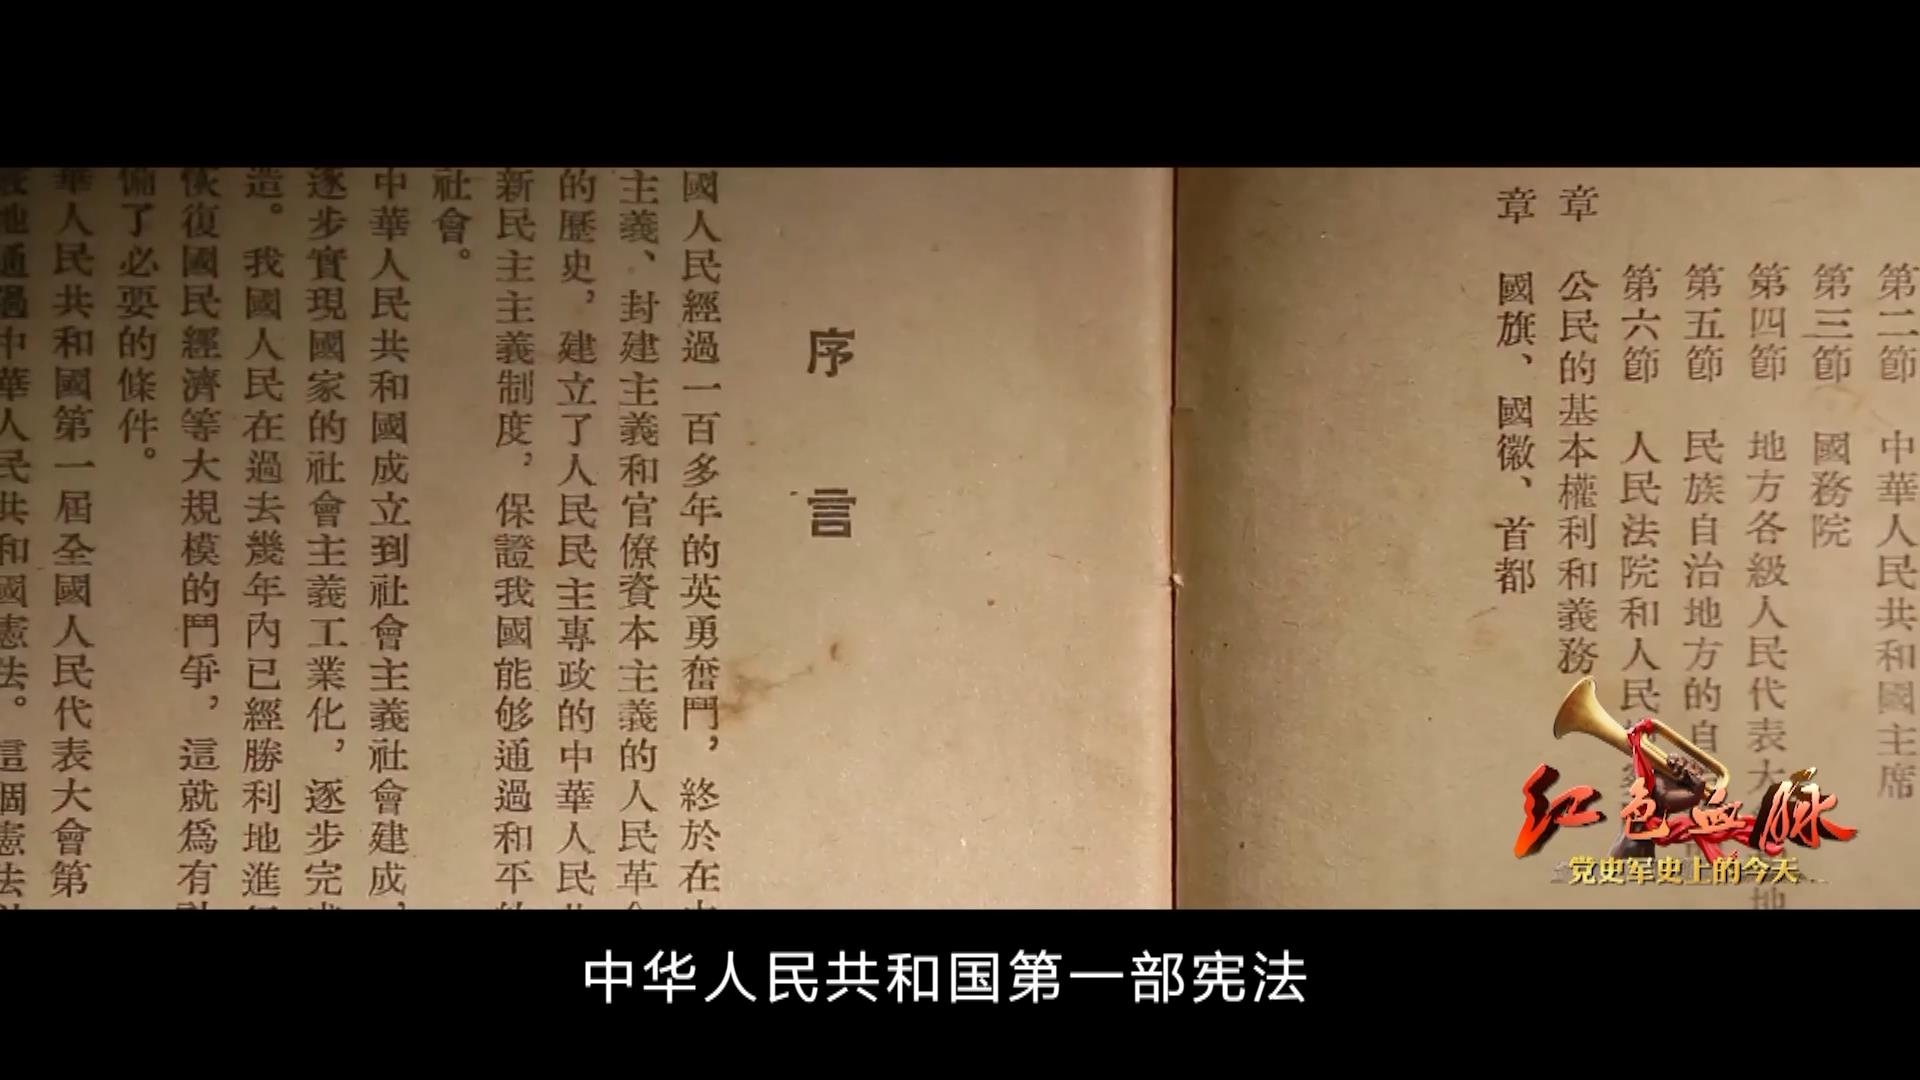 第二節 中華人民共和國主席
第三節 國務院
第四節 地方各級人民代表大
第五節 民族自治地方的自
第六節 人民法院和人民
章 公民的基本權利和義務
章 國旗、國徽、首都
序言
國人民經過一百多年的英勇奮鬥，終於在
主義、封建主義和官僚資本主義的人民革
的歷史，建立了人民民主專政的中華人民
新民主主義制度，保證我國能够通過和平
社會。
中華人民共和國成立到社會主義社會建成，
逐步實現國家的社會主義工業化，逐步完
造。我國人民在過去幾年內已經勝利地進
恢復國民經濟等大規模的鬥爭，這就爲有
備了必要的條件。
華人民共和國第一屆全國人民代表大會第
嚴地通過中華人民共和國憲法。這個憲法
红色血脉
党史军史上的今天
中华人民共和国第一部宪法